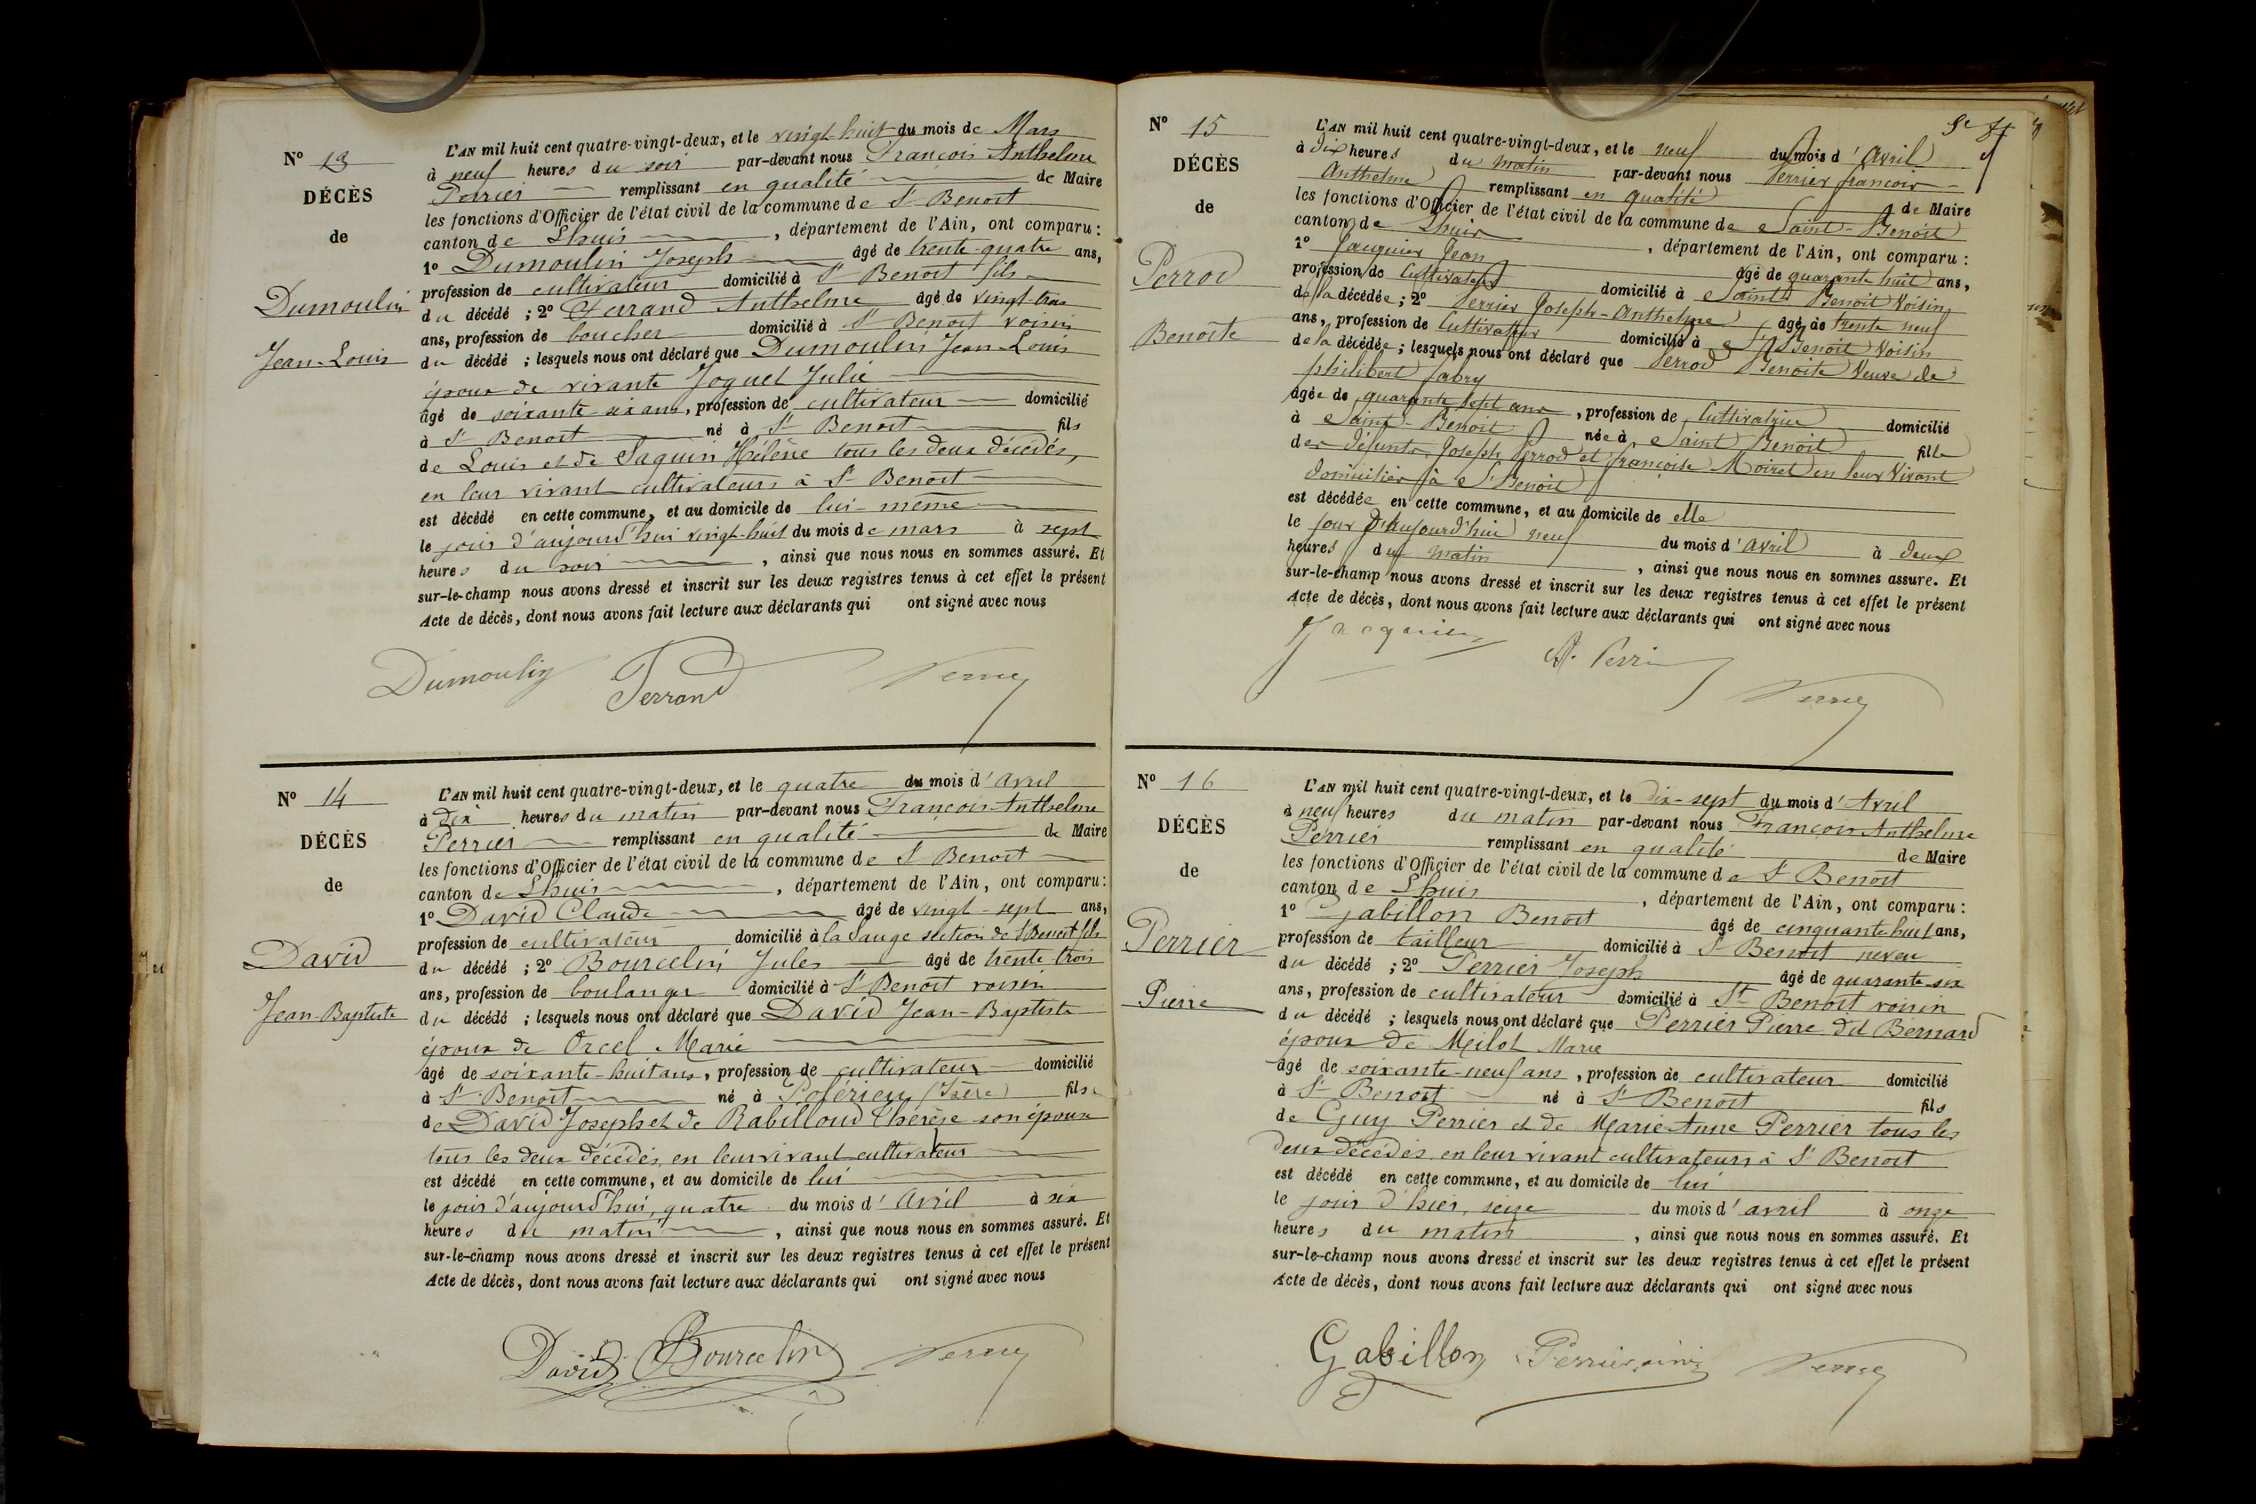 N° 13
DÉCÈS
de
Dumoulin
Jean-Louis
L'AN mil huit cent quatre-vingt-deux, et le vingt-huit du mois de Mars
à neuf heures du soir par-devant nous François Anthelme
Perrier remplissant en qualité de Maire
les fonctions d'Officier de l'état civil de la commune de St Benoît
canton de Lhuis, département de l'Ain, ont comparu :
1° Dumoulin Joseph âgé de trente-quatre ans,
profession de cultivateur domicilié à St Benoît fils
du décédé ; 2° Ferrand Anthelme âgé de vingt-trois
ans, profession de boucher domicilié à St Benoît voisin
du décédé ; lesquels nous ont déclaré que Dumoulin Jean-Louis
époux de vivante Joguet Julie
âgé de soixante-six ans, profession de cultivateur domicilié
à St Benoît né à St Benoît fils
de Louis et de Saquin Hélène tous les deux décédés,
en leur vivant cultivateurs à St Benoît
est décédé en cette commune, et au domicile de lui-même
le jour d'aujourd'hui vingt-huit du mois de mars à sept
heures du soir, ainsi que nous nous en sommes assuré. Et
sur-le-champ nous avons dressé et inscrit sur les deux registres tenus à cet effet le présent
Acte de décès, dont nous avons fait lecture aux déclarants qui ont signé avec nous
Dumoulin Ferrand
N° 14
DÉCÈS
de
David
Jean-Baptiste
L'AN mil huit cent quatre-vingt-deux, et le quatre du mois d'avril
à dix heures du matin par-devant nous François Anthelme
Perrier remplissant en qualité de Maire
les fonctions d'Officier de l'état civil de la commune de St Benoît
canton de Lhuis, département de l'Ain, ont comparu :
1° David Claude âgé de vingt-sept ans,
profession de cultivateur domicilié à la Sauge section de St Benoît fils
du décédé ; 2° Bourcelin Jules âgé de trente trois
ans, profession de boulanger domicilié à St Benoît voisin
du décédé ; lesquels nous ont déclaré que David Jean-Baptiste
époux de Orcel Marie
âgé de soixante-huit ans, profession de cultivateur domicilié
à St Benoît né à (Isère) fils
de David Joseph et de Rabilloud Thérèse son épouse
tous les deux décédés, en leur vivant cultivateur
est décédé en cette commune, et au domicile de lui
le jour d'aujourd'hui, quatre du mois d'avril à six
heures du matin, ainsi que nous nous en sommes assuré. Et
sur-le-champ nous avons dressé et inscrit sur les deux registres tenus à cet effet le présent
Acte de décès, dont nous avons fait lecture aux déclarants qui ont signé avec nous
David Bourcelin
N° 15
DÉCÈS
de
Perrod
Benoîte
L'AN mil huit cent quatre-vingt-deux, et le neuf du mois d'avril
à dix heures du matin par-devant nous Perrier françois
Anthelme remplissant en qualité de Maire
les fonctions d'Officier de l'état civil de la commune de Saint-Benoit
canton de Lhuis, département de l'Ain, ont comparu :
1° Jaquier Jean âgé de quarante huit ans,
profession de Cultivateur domicilié à Saint Benoit Voisin
de la décédée ; 2° Perrier Joseph-Anthelme âgé de trente neuf
ans, profession de Cultivateur domicilié à St Benoit Voisin
de la décédée ; lesquels nous ont déclaré que Perrod Benoite Veuve de
philibert fabry
âgée de quarante sept ans, profession de Cultivatrice domicilié
à Saint-Benoit née à Saint Benoit fille
des défunts Joseph Perrod et françoise Moiret en leur Vivant
domiciliés à St Benoit
est décédée en cette commune, et au domicile de elle
le jour d'aujourd'hui neuf du mois d'avril à deux
heures du matin, ainsi que nous nous en sommes assuré. Et
sur-le-champ nous avons dressé et inscrit sur les deux registres tenus à cet effet le présent
Acte de décès, dont nous avons fait lecture aux déclarants qui ont signé avec nous
N° 16
DÉCÈS
de
Perrier
Pierre
L'AN mil huit cent quatre-vingt-deux, et le dix-sept du mois d'Avril
à neuf heures du matin par-devant nous François Anthelme
Perrier remplissant en qualité de Maire
les fonctions d'Officier de l'état civil de la commune de St Benoît
canton de Lhuis, département de l'Ain, ont comparu :
1° Gabillon Benoît âgé de cinquante huit ans,
profession de tailleur domicilié à St Benoît neveu
du décédé ; 2° Perrier Joseph âgé de quarante-six
ans, profession de cultivateur domicilié à St Benoît voisin
du décédé ; lesquels nous ont déclaré que Perrier Pierre dit Bernard
époux de Milot Marie
âgé de soixante-neuf ans, profession de cultivateur domicilié
à St Benoît né à St Benoît fils
de Guy Perrier et de Marie Anne Perrier tous les
deux décédés en leur vivant cultivateurs à St Benoît
est décédé en cette commune, et au domicile de lui
le jour d'hier, seize du mois d'avril à onze
heures du matin, ainsi que nous nous en sommes assuré. Et
sur-le-champ nous avons dressé et inscrit sur les deux registres tenus à cet effet le présent
Acte de décès, dont nous avons fait lecture aux déclarants qui ont signé avec nous
Gabillon